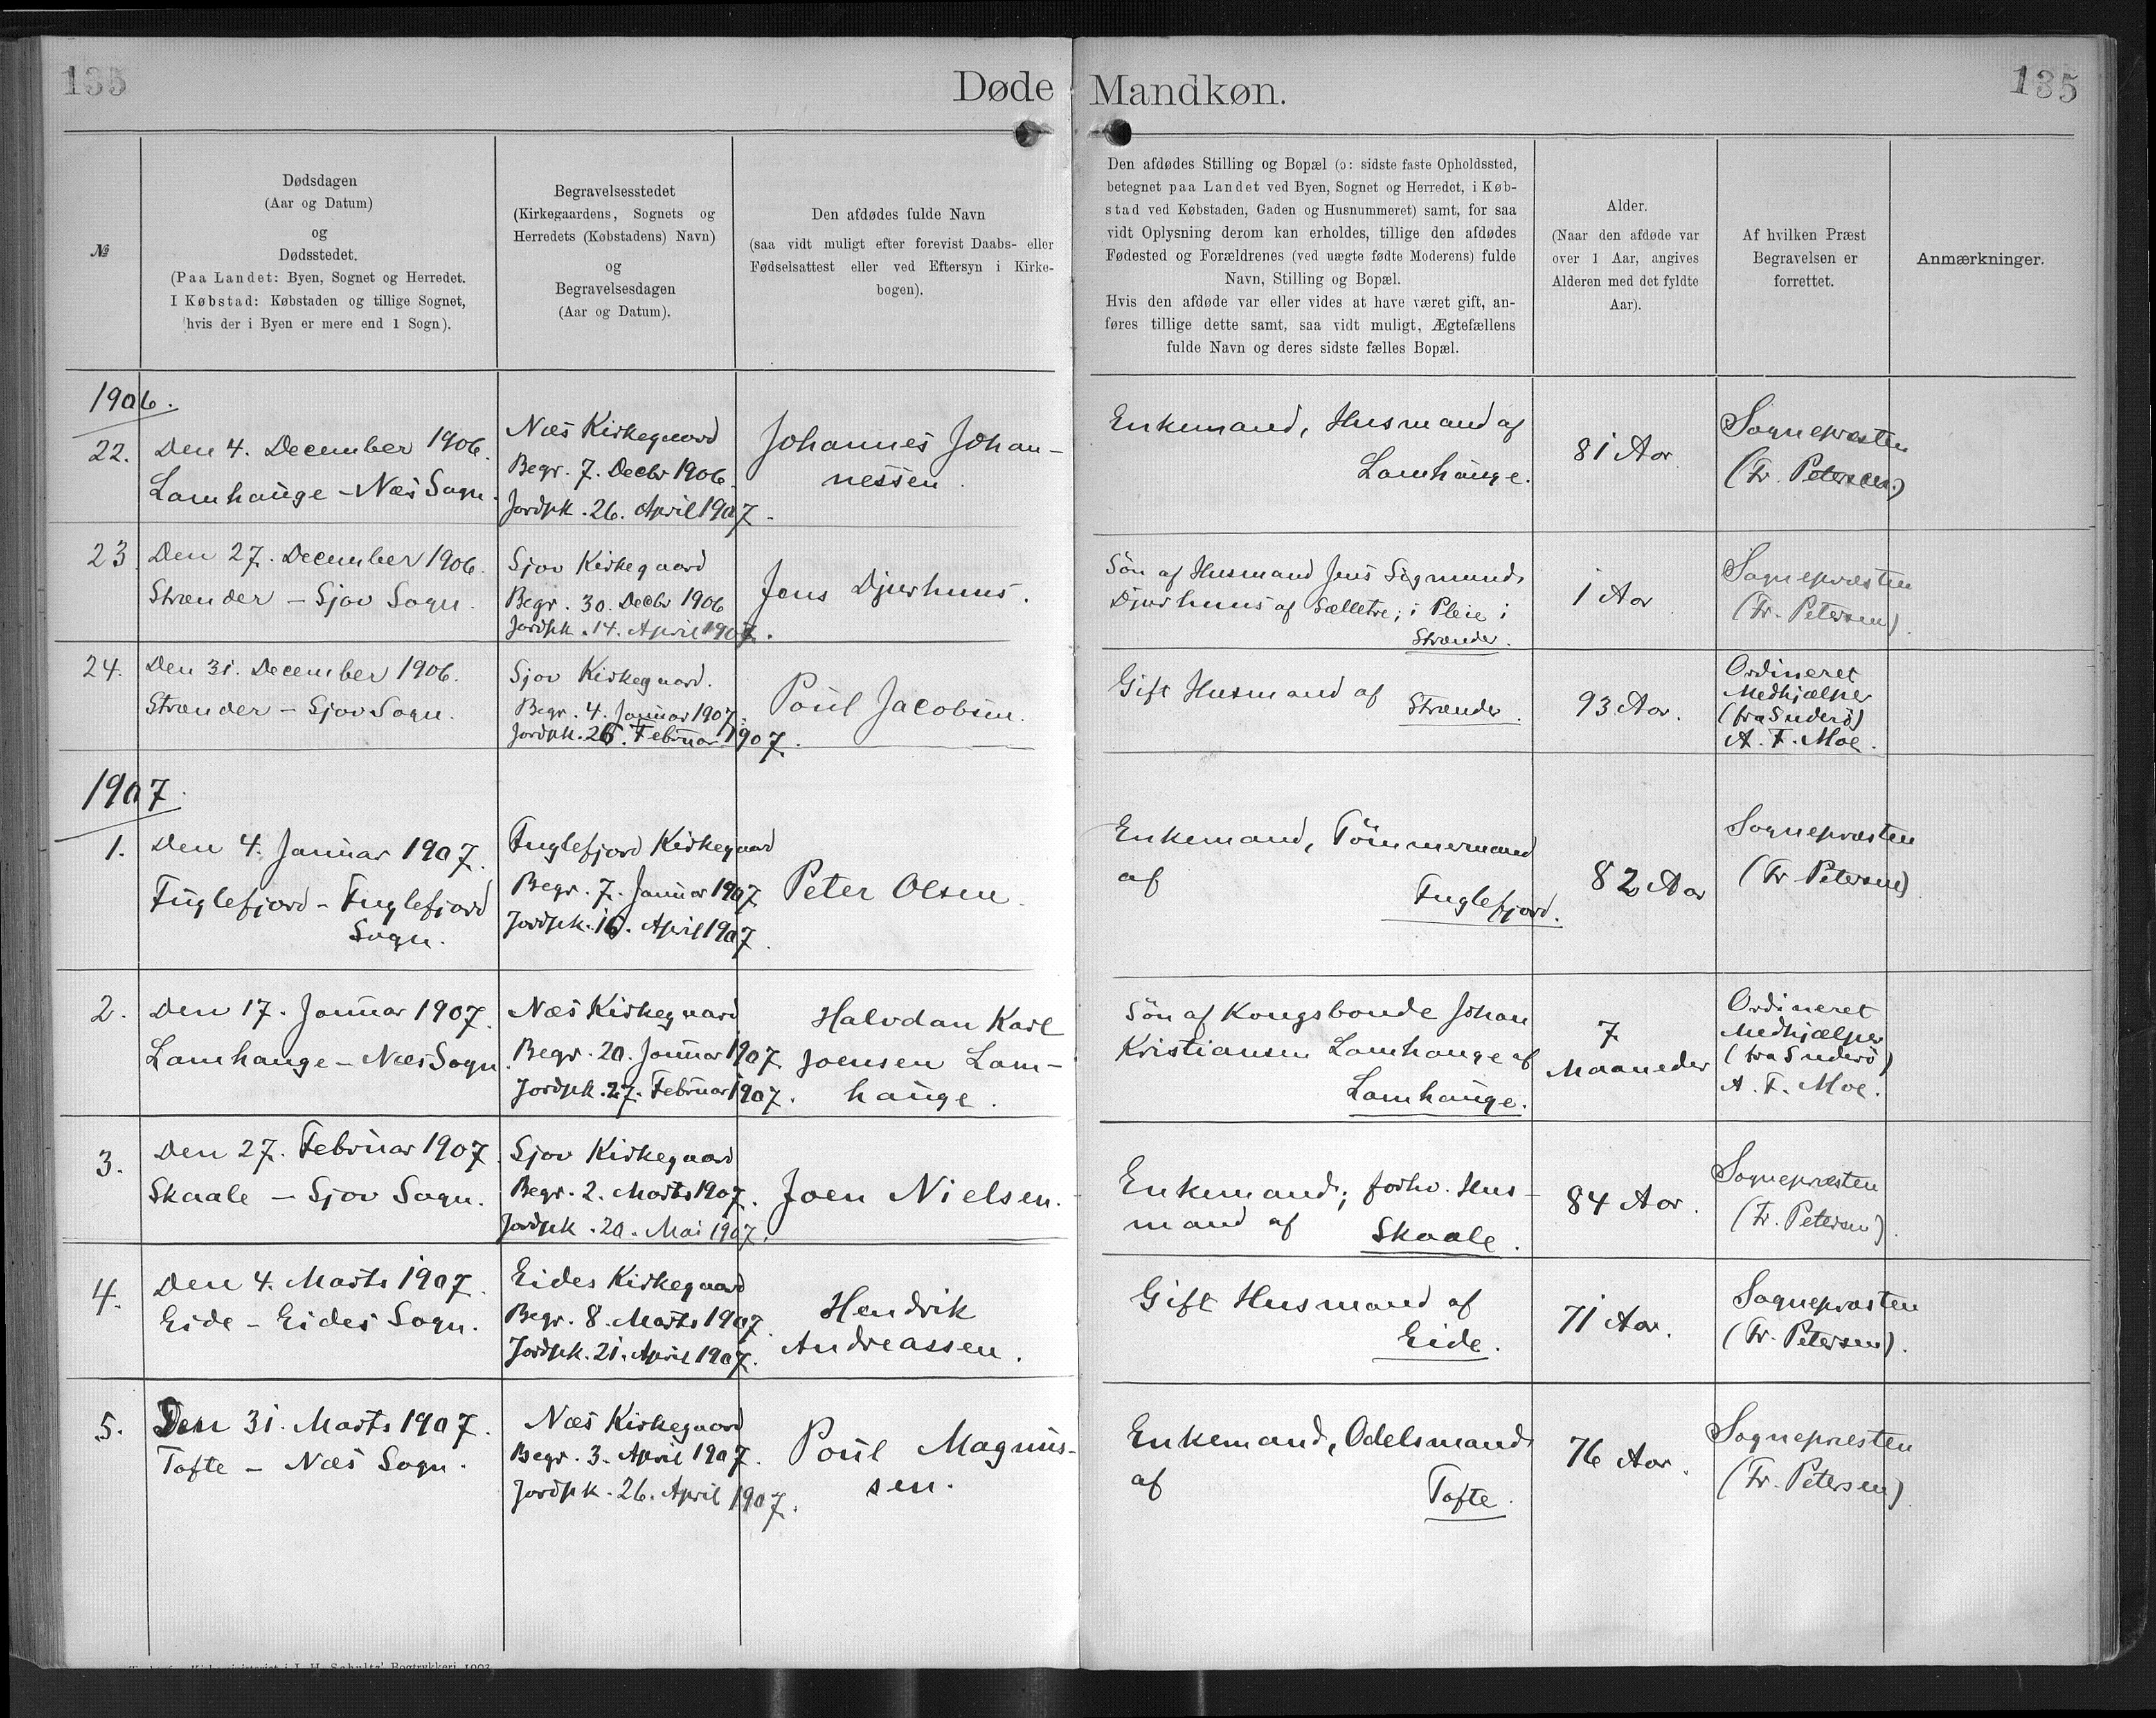 135
Døde Mandkøn.
135
№
Dødsdagen
(Aar og Datum)
og
Dødsstedet.
(Paa Landet: Byen, Sognet og Herredet.
I Købstad: Købstaden og tillige Sognet,
hvis der i Byen er mere end 1 Sogn).
Begravelsesstedet
(Kirkegaardens, Sognets og
Herredets (Købstadens) Navn)
og
Begravelsesdagen
(Aar og Datum).
Den afdødes fulde Navn
(saa vidt muligt efter forevist Daabs- eller
Fødselsattest eller ved Eftersyn i Kirke-
bogen).
Den afdødes Stilling og Bopæl (ɔ: sidste faste Opholdssted,
betegnet paa Landet ved Byen, Sognet og Herredet, i Køb-
stad ved Købstaden, Gaden og Husnummeret) samt, for saa
vidt Oplysning derom kan erholdes, tillige den afdødes
Fødested og Forældrenes (ved uægte fødte Moderens) fulde
Navn, Stilling og Bopæl.
Hvis den afdøde var eller vides at have været gift, an-
føres tillige dette samt, saa vidt muligt, Ægtefællens
fulde Navn og deres sidste fælles Bopæl.
Alder.
(Naar den afdøde var
over 1 Aar, angives
Alderen med det fyldte
Aar).
Af hvilken Præst
Begravelsen er
forrettet.
Anmærkninger.
1906.
22.
Den 4. December 1906.
Lamhauge - Næs Sogn.
Næs Kirkegaard
Begr. 7. Decbr 1906.
Jordpk. 26. April 1907.
Johannes Johan-
nessen.
Enkemand, Husmand af
Lamhauge.
81 Aar
Sognepræsten
(Fr. Petersen)
23
Den 27. December 1906.
Strænder - Sjov Sogn.
Sjov Kirkegaard
Begr. 30. Decbr 1906
Jordpk. 14. April 1907.
Jens Djurhuus.
Søn af Husmand Jens Sigmund
Djurhuus af Sælletre; i Pleie i
Strænder.
1 Aar
Sognepræsten
(Fr. Petersen).
24.
Den 31. December 1906.
Strænder - Sjov Sogn.
Sjov Kirkegaard.
Begr. 4. Januar 1907.
Jordpk. 26. Februar 1907.
Poul Jacobsen.
Gift Husmand af Strænder.
93 Aar.
Ordineret
Medhjælper
(fra Suderø)
A. F. Moe.
1907.
1.
Den 4. Januar 1907.
Fuglefjord - Fuglefjord
Sogn.
Fuglefjord Kirkegaard
Begr. 7. Januar 1907
Jordpk. 16. April 1907.
Peter Olsen.
Enkemand, Tømmermand
af
Fuglefjord.
82 Aar
Sognepræsten
(Fr Petersen).
2.
Den 17. Januar 1907.
Lamhauge - Næs Sogn
Næs Kirkegaard
Begr. 20. Januar 1907
Jordpk. 27. Februar 1907.
Halvdan Karl
Joensen Lam-
hauge.
Søn af Kongsbonde Johan
Kristiansen Lamhauge af
Lamhauge.
7
Maaneder
Ordineret
Medhjælper
(fra Suderø)
A. F. Moe.
3.
Den 27. Februar 1907.
Skaale - Sjov Sogn.
Sjov Kirkegaard
Begr. 2. Marts 1907.
Jordpk. 20. Mai 1907.
Joen Nielsen.
Enkemand; forhv. Hus-
mand af Skaale.
84 Aar.
Sognepræsten
(Fr. Petersen).
4.
Den 4. Marts 1907.
Eide - Eides Sogn.
Eides Kirkegaard
Begr. 8. Marts 1907.
Jordpk. 21. April 1907.
Hendrik
Andreassen.
Gift Husmand af
Eide.
71 Aar.
Sognepræsten
(Fr. Petersen).
5.
Den 31. Marts 1907.
Tofte - Næs Sogn.
Næs Kirkegaard
Begr. 3. April 1907.
Jordpk. 26. April 1907.
Poul Magnus-
sen.
Enkemand, Odelsmand
af
Tofte.
76 Aar.
Sognepræsten
(Fr. Petersen).